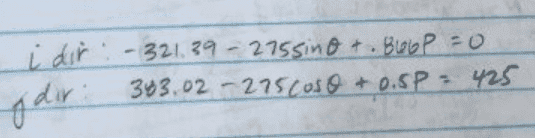 i dir: -321.39 - 275sinθ + .866P = 0
j dir: 383.02 - 275cosθ + 0.5P = 425